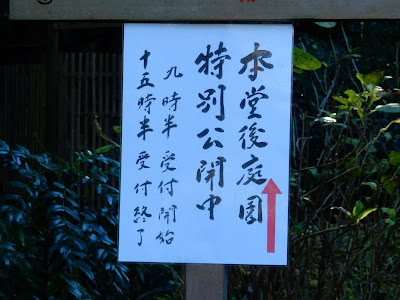 本堂後庭園
特別公開中
九時半受付開始
十五時半受付終了